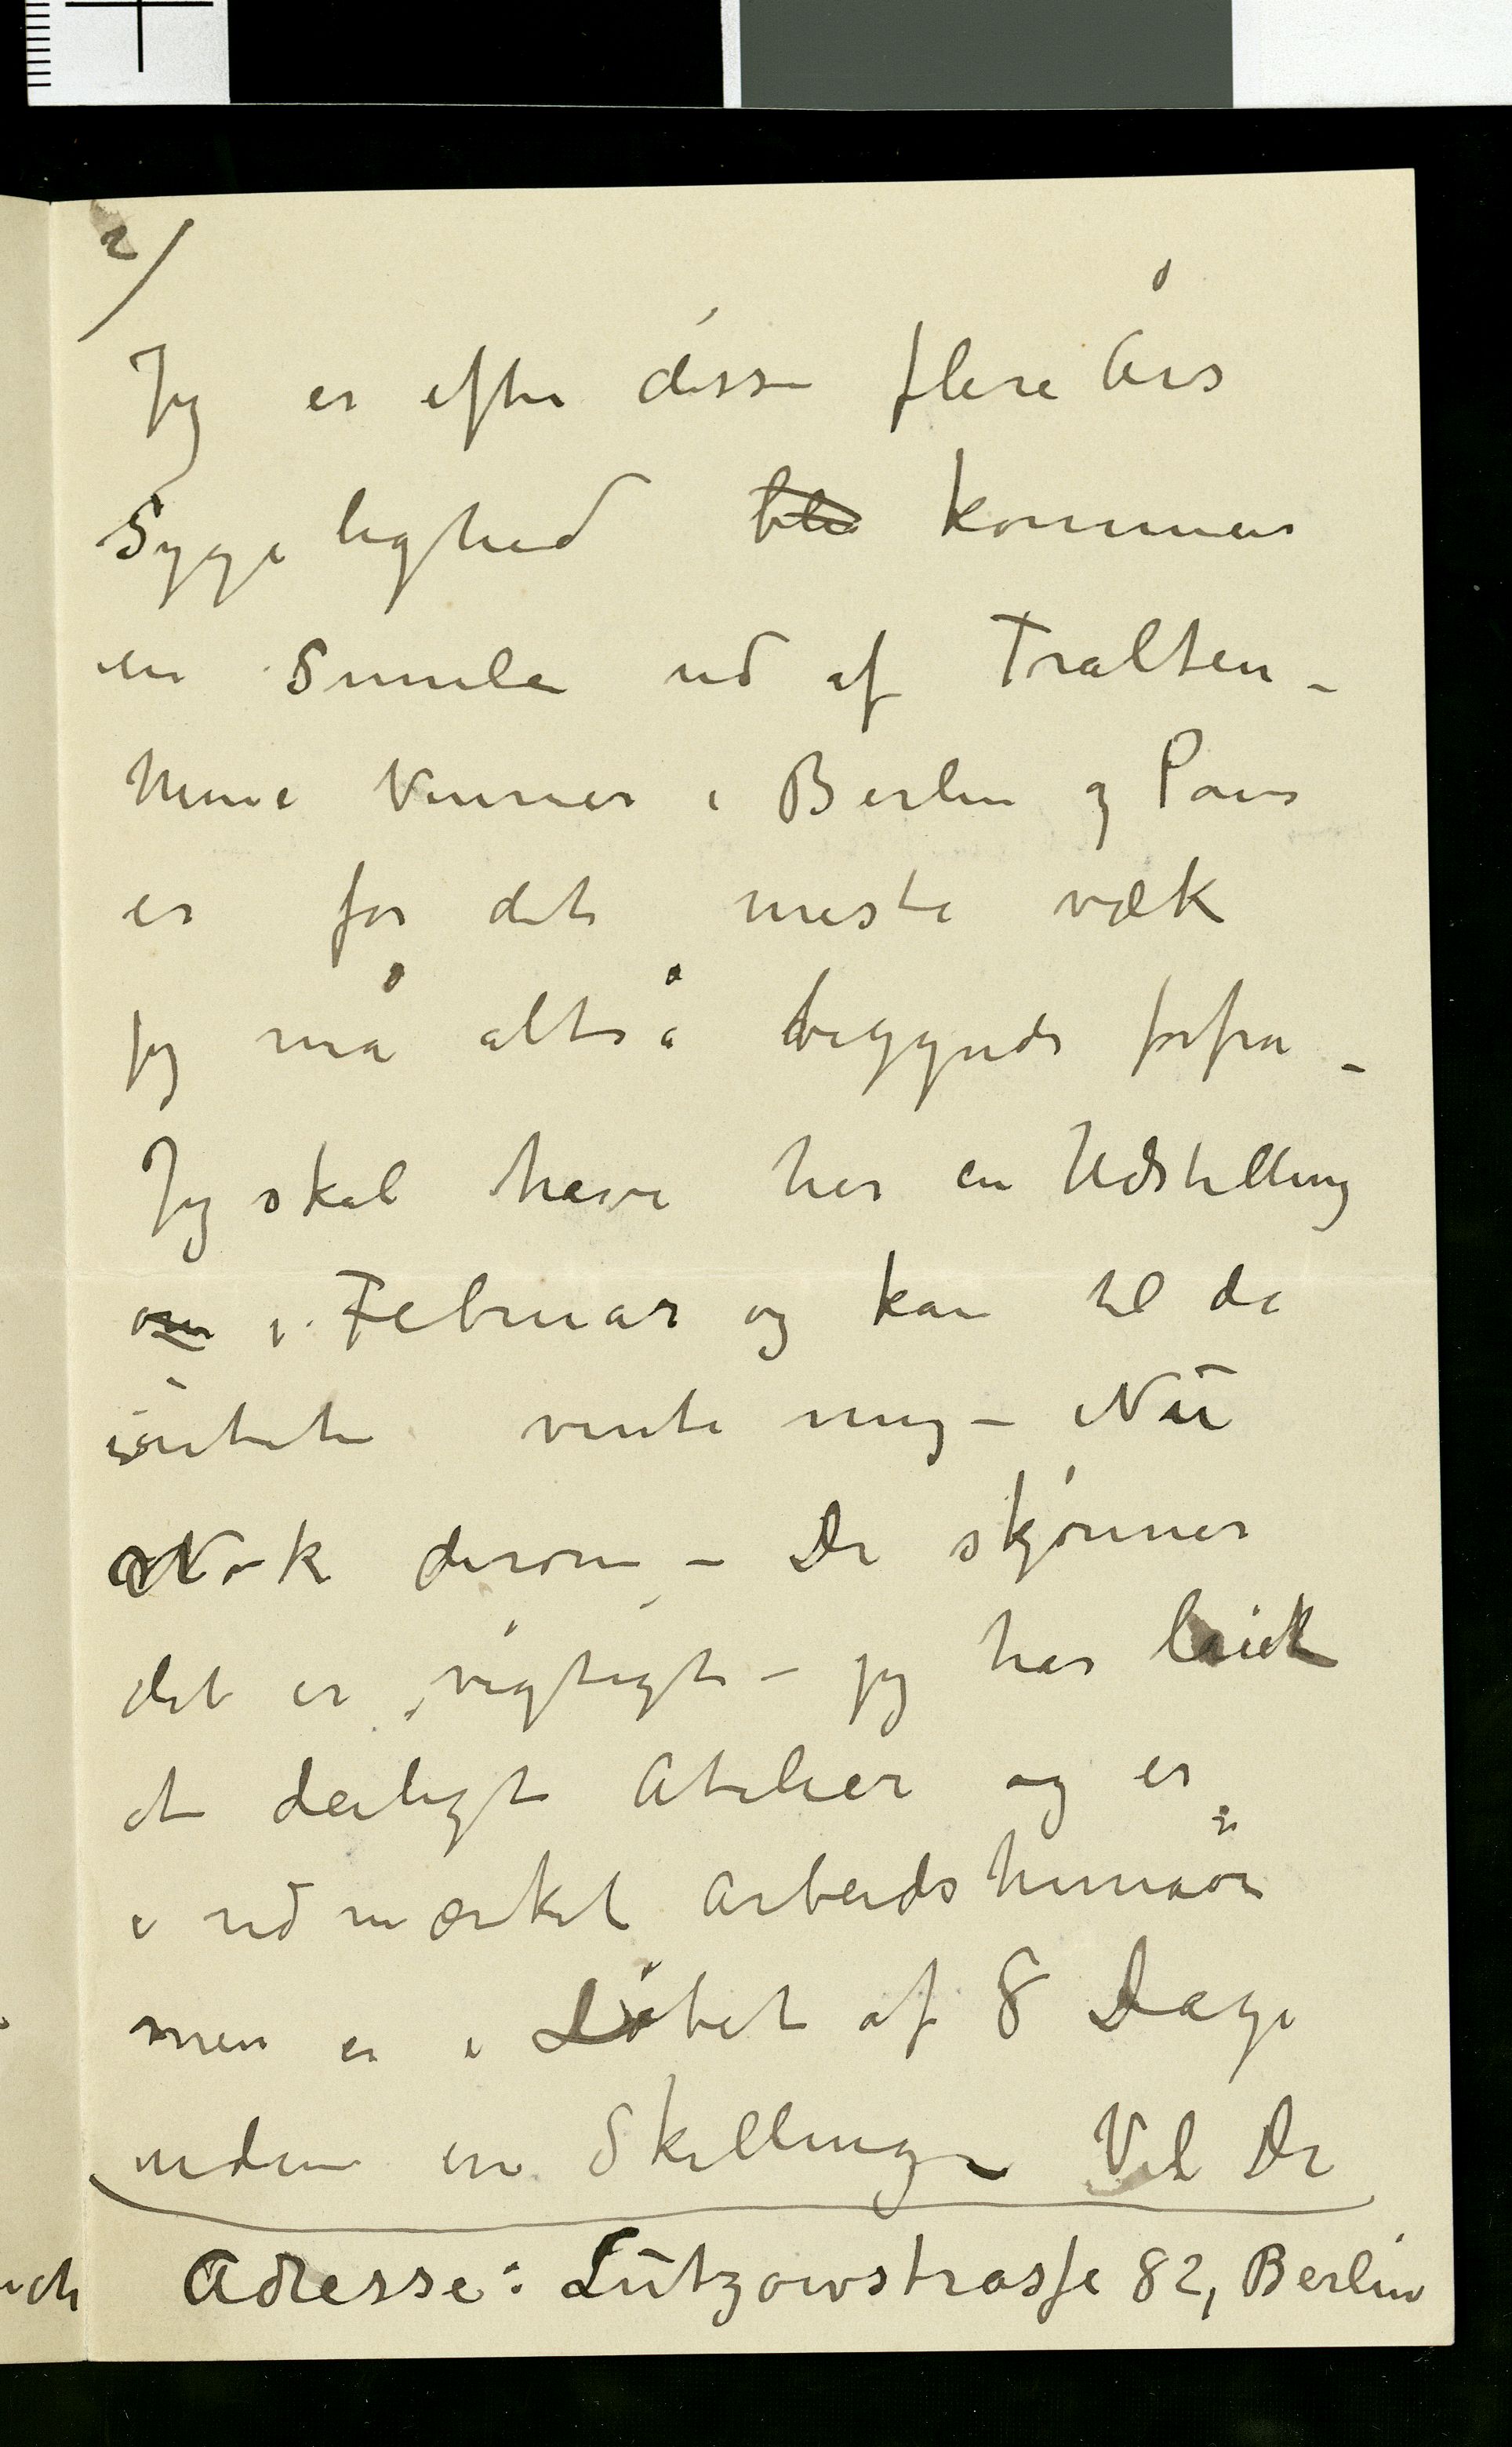 2/
Jeg er efter disse flere års
Sygelighed ble kommen
en Smule ud af Tralten –
Mine Venner i Berlin og Paris
er for det meste væk
jeg må altså begynde forfra –
Jeg skal have her en Udstilling
om i Februar og kan til da
intet vente mig – Nu
Nok derom – De skjønner
det er vigtigt – jeg har leiet
et deiligt Atelier og er
i udmærket Arbeidshumør
men er i Løbet af 8 Dage
uden en Skilling – Vil De
Adresse: Lützowstrasse 82, Berlin